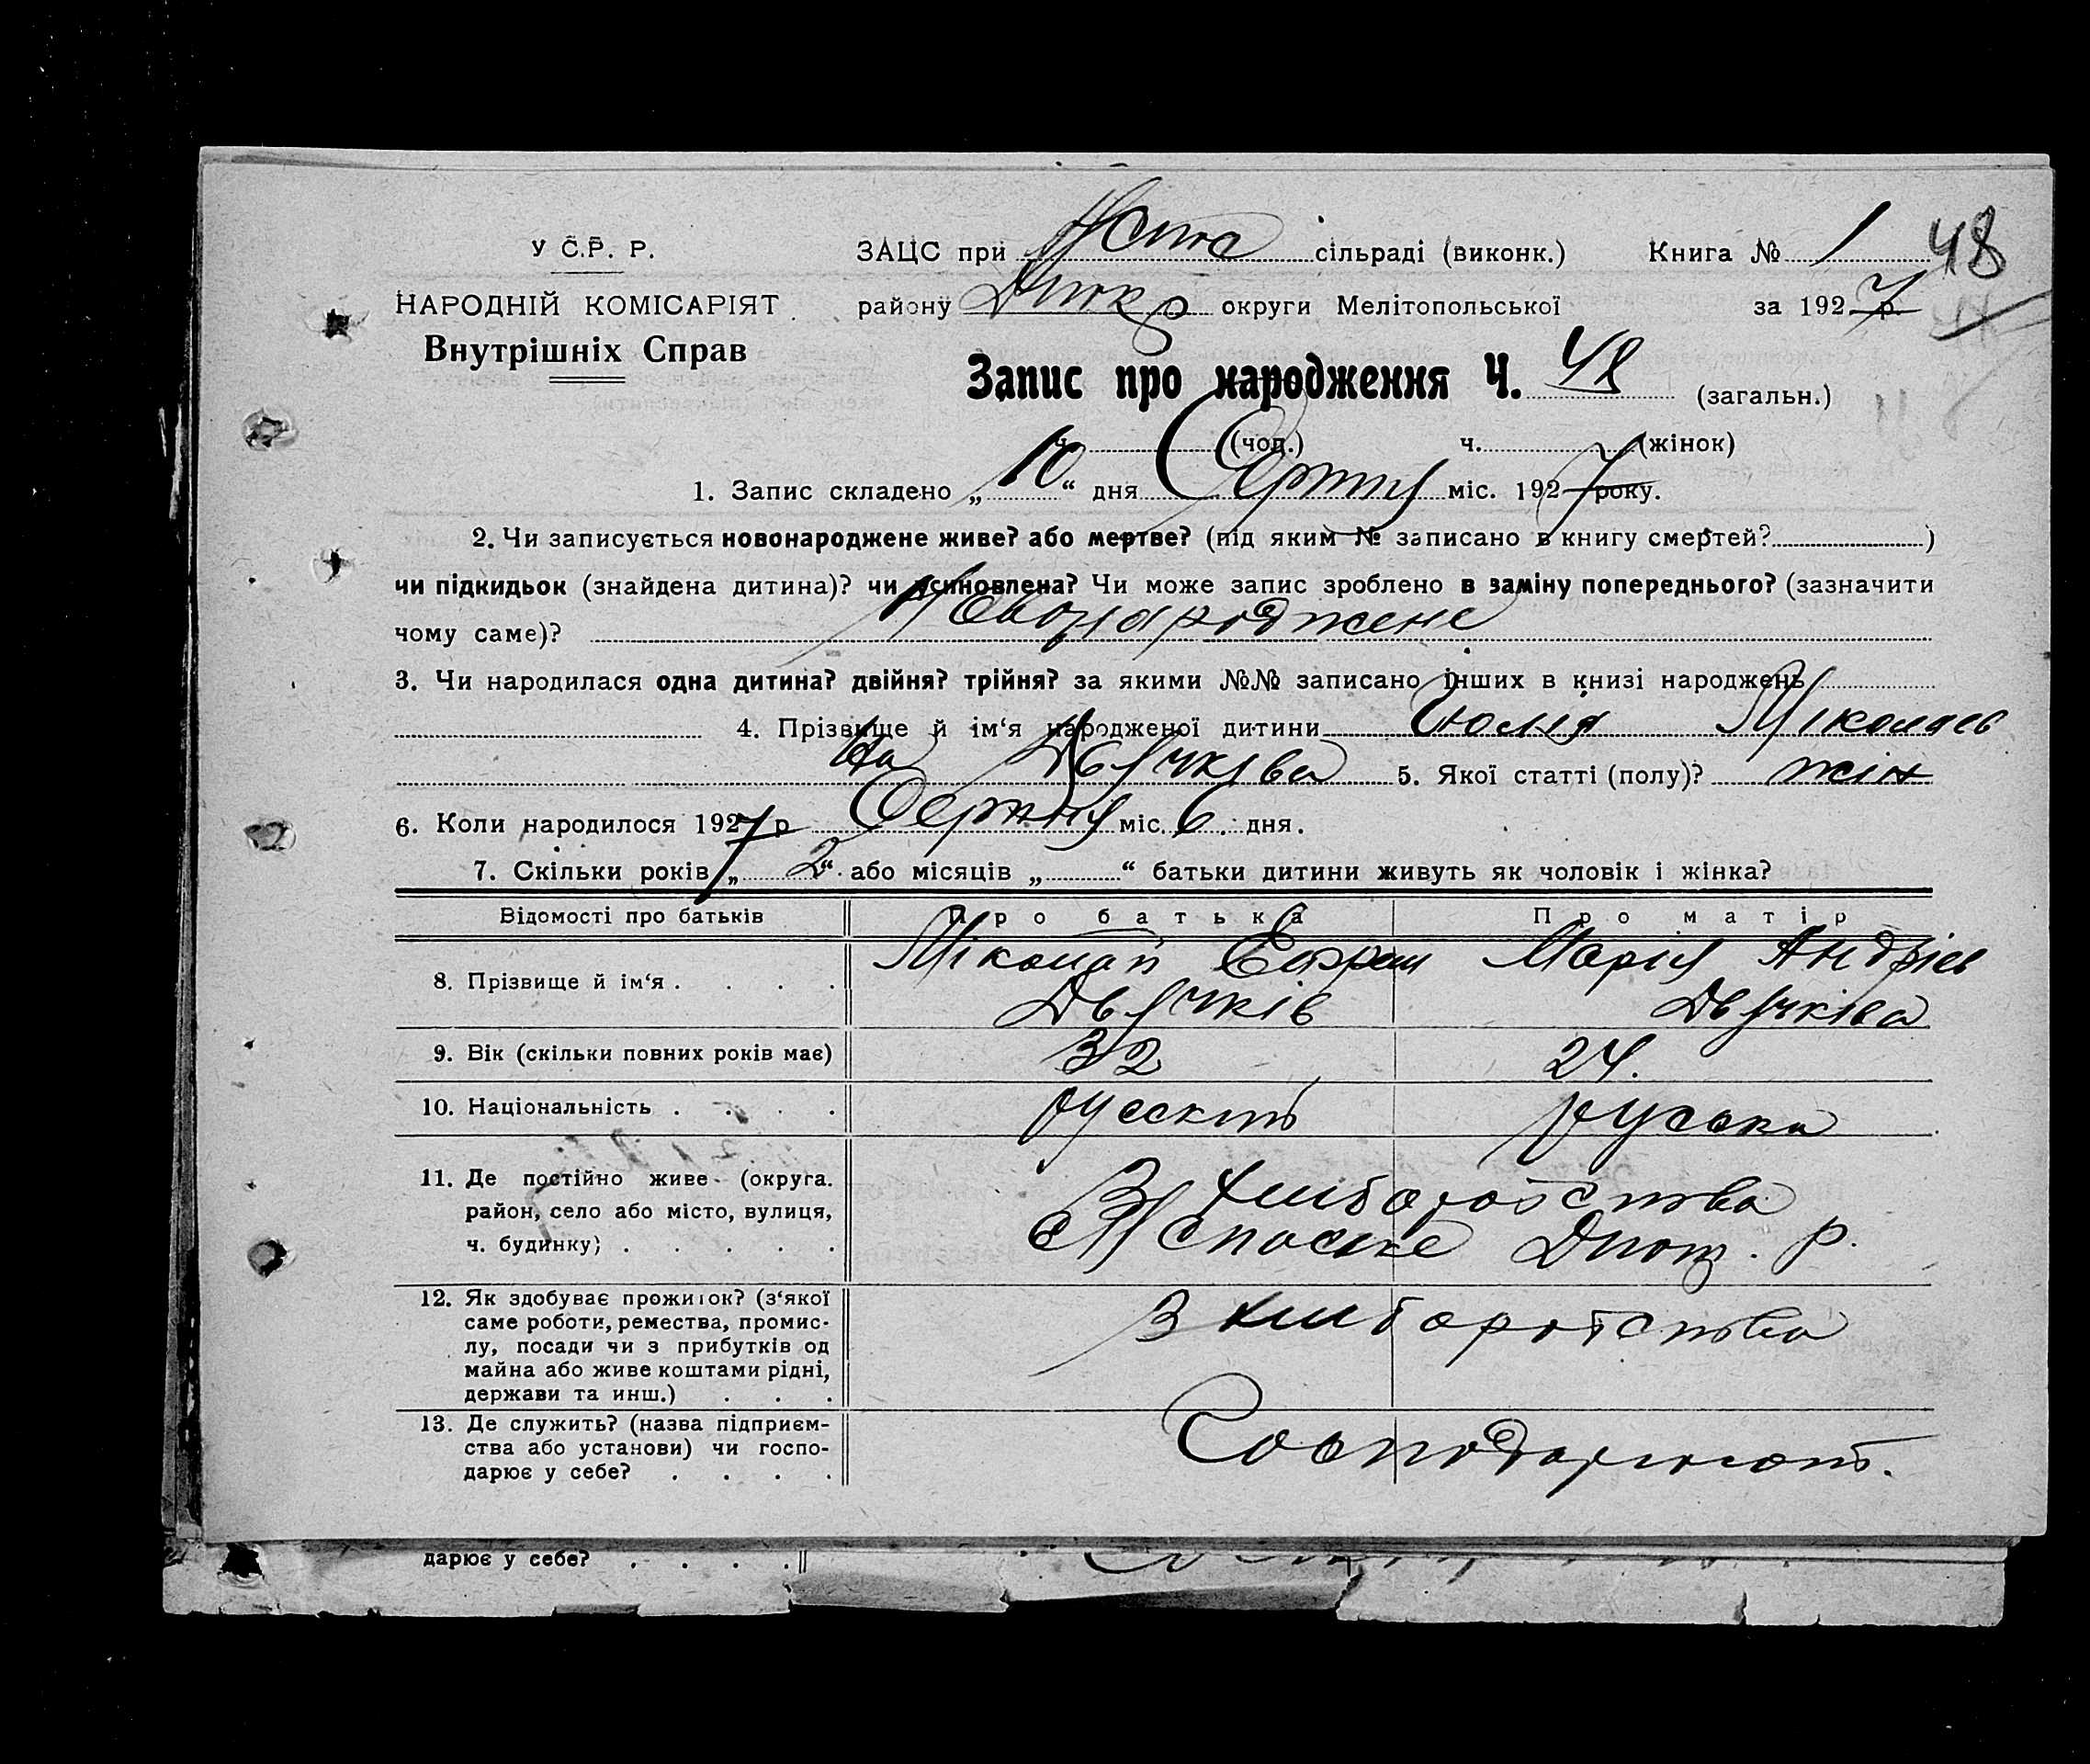 У С.Р. Р.
НАРОДНІЙ КОМІСАРІЯТ
Внутрішніх Справ
ЗАЦС при сільраді (виконк.) Книга № 1 48
району округи Мелітопольської за 1927 р.
Запис про народження Ч. 48 (загальн.)
ч. (чол.) ч. (жінок)
1. Запис складено „ 10 “ дня Серпня міс. 1927 року.
2. Чи записується новонароджене живе? або мертве? (під яким № записано в книгу смертей? )
чи підкидьок (знайдена дитина)? чи усиновлена? Чи може запис зроблено в заміну попереднього? (зазначити
чому саме)? Новонароджене
3. Чи народилася одна дитина? двійня? трійня? за якими №№ записано інших в книзі народжень
4. Прізвище й ім‘я народженої дитини Юлія Міколаев
на 5. Якої статті (полу)? жін
6. Коли народилося 1927 р Серпня міс. 6 дня.
7. Скільки років „ 2 “ або місяців „ “ батьки дитини живуть як чоловік і жінка?
Відомості про батьків Про батька Про матір
8. Прізвище й ім‘я . . . . Міколай Мария Андрієв
9. Вік (скільки повних років має) 32 24.
10. Національність . . . . руська
11. Де постійно живе (округа.
район, село або місто, вулиця,
ч. будинку) . . . . .
З хліборобства
р.
12. Як здобуває прожиток? (з‘якої
саме роботи, ремества, промис-
лу, посади чи з прибутків од
майна або живе коштами рідні,
держави та инш.) . . .
З хліборобства
13. Де служить? (назва підприєм-
ства або установи) чи госпо-
дарює у себе? . . . .
Господарюють.
дарює у себе? . . . .